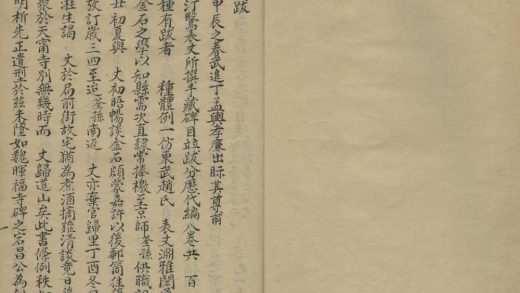 跋
甲辰之春武進丁孟輿孝廉出眎其尊甫
汀鷺表丈所撰手藏碑目並跋分歷代編八卷共 百
種有跋者 種體例一仿東武趙氏 表丈淵雅閎通
金石之學以知縣需次直隸常捧檄至京師荃孫供職詞
丑初夏與 丈初晤暢談金石頗蒙嘉許以後郵筒往
攷訂歲三四至迨荃孫南返 丈亦棄官歸里丁酉冬
莊生謁 丈於局前街故宅猶為煮酒摘蔬清談竟日後
聚於天甯寺別無幾時而 丈歸道山矣此書條例秩
明析先正遺型於茲未墜如魏暉福寺碑之宕昌公為